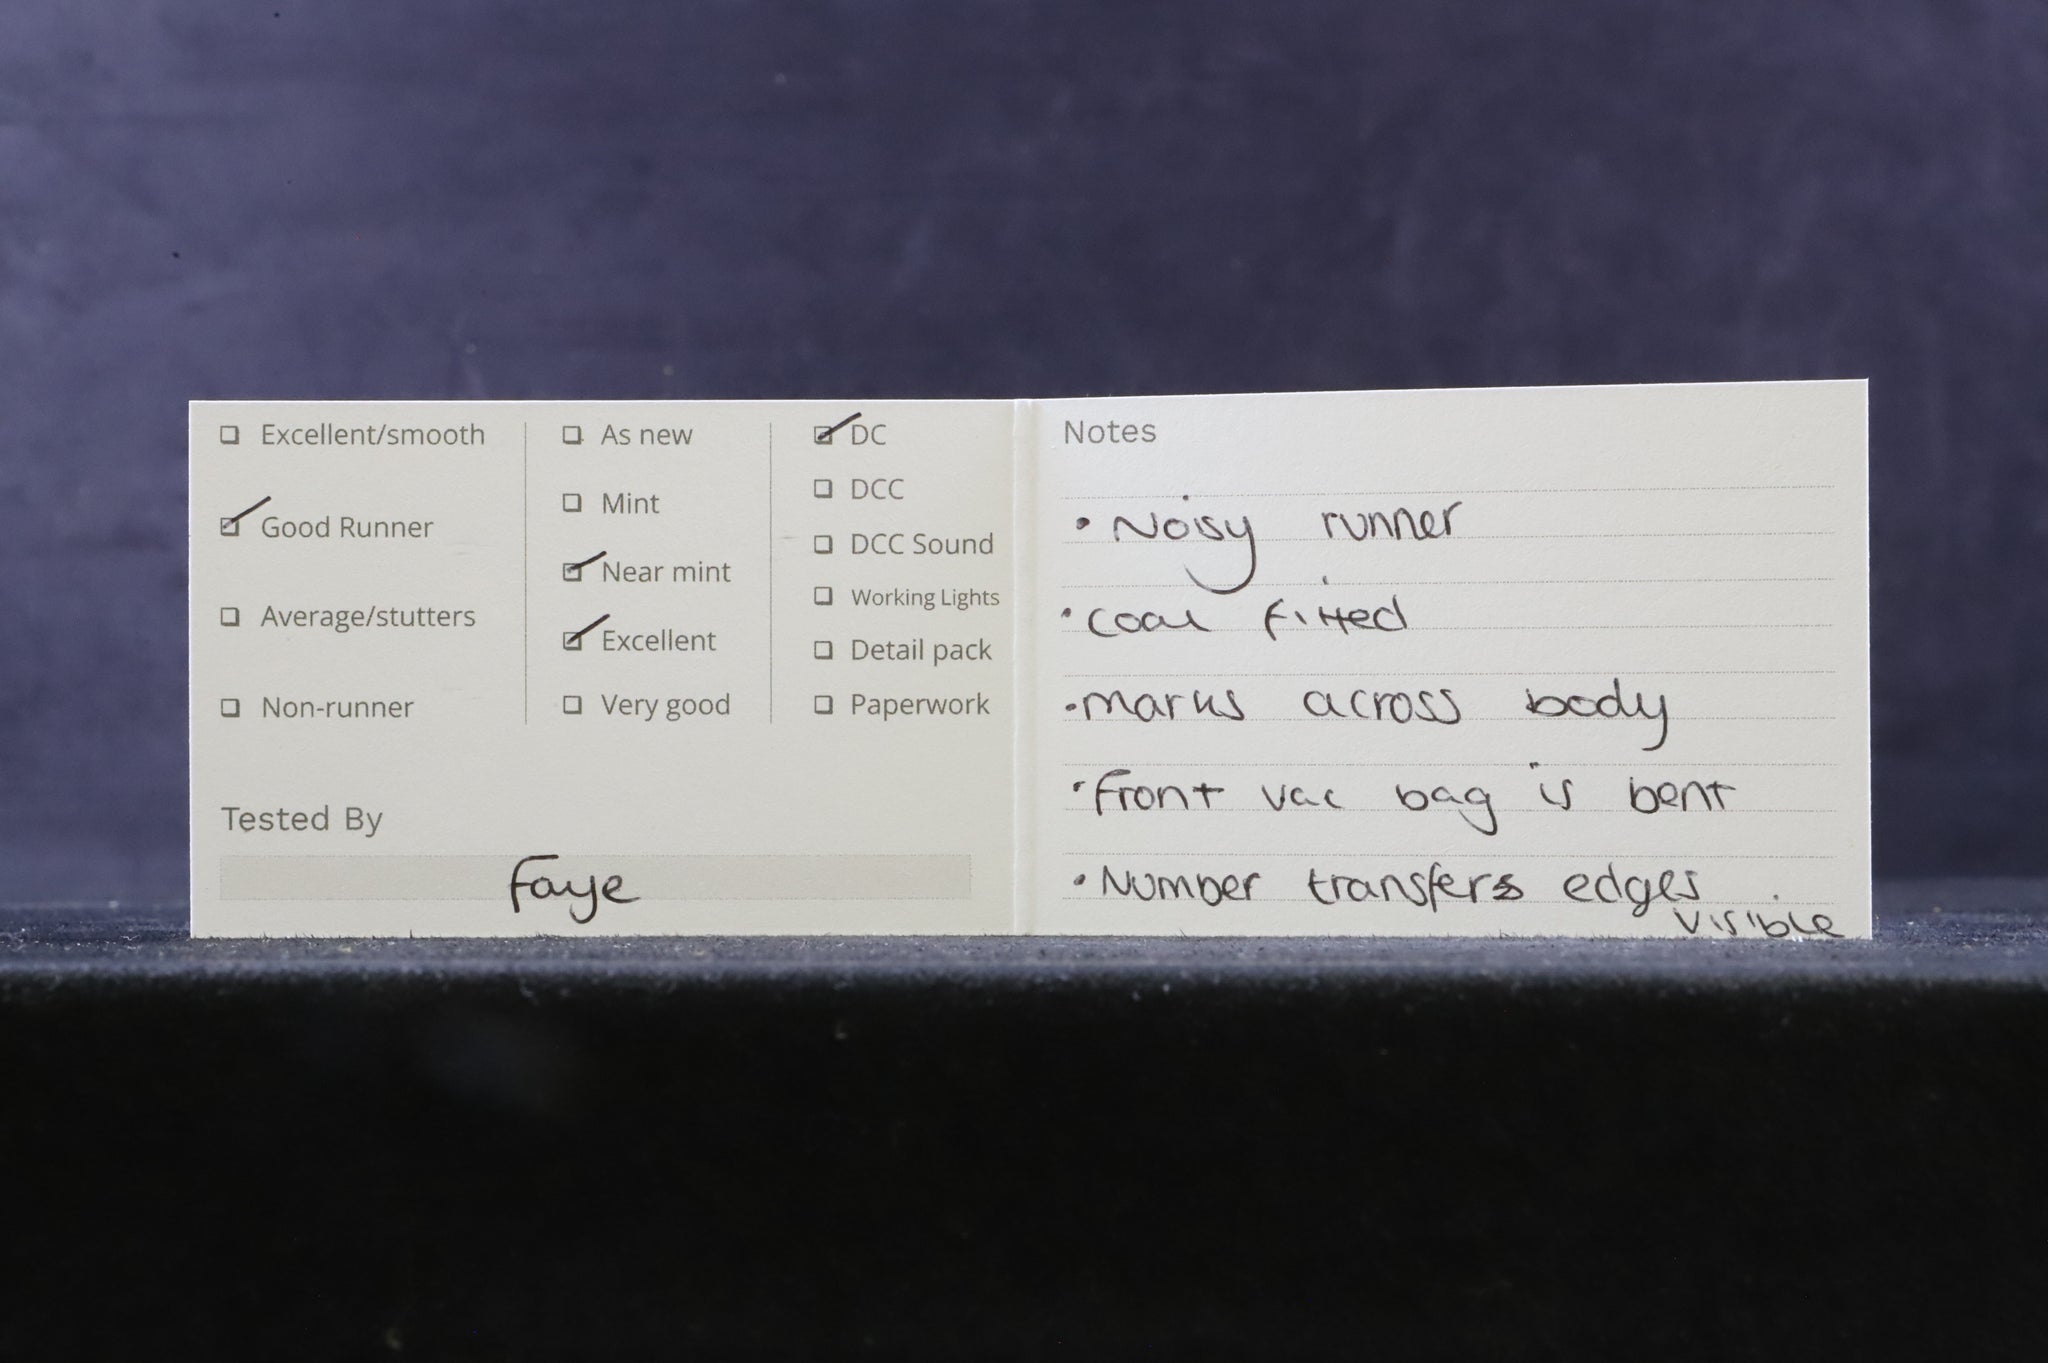 Excellent/smooth
Good Runner
Average/stutters
Non-runner
As new
Mint
Near mint
Excellent
Very good
DC
DCC
DCC Sound
Working Lights
Detail pack
Paperwork
Tested By
Faye
Notes
• Noisy runner
• coal fitted
• marks across body
• Front vac bag is bent
• Number transfers edges
visible